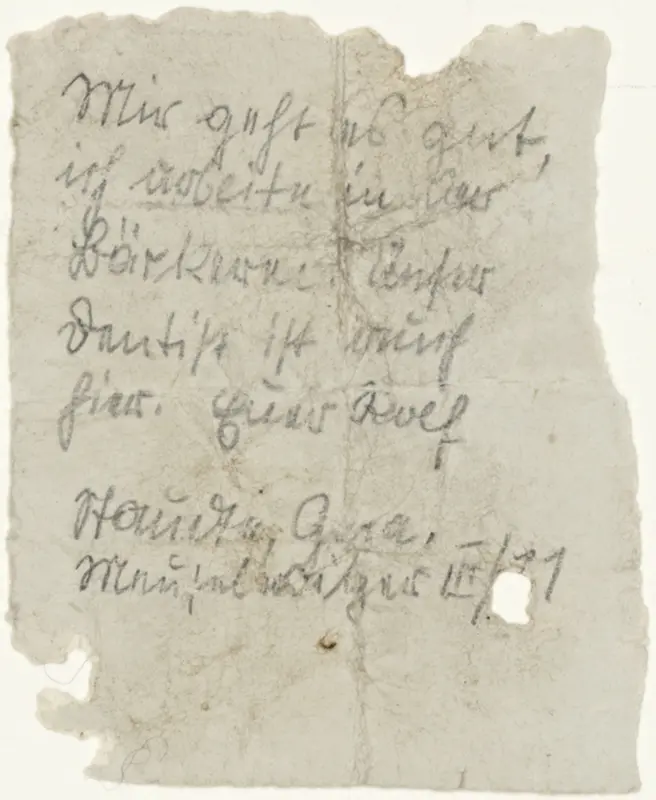 Mir geht es gut,
ich arbeite in der
Bäckerei. Unser
Dentist ist auch
hier. Euer Rolf
Staude, Gera,
Meuselwitzer III/11